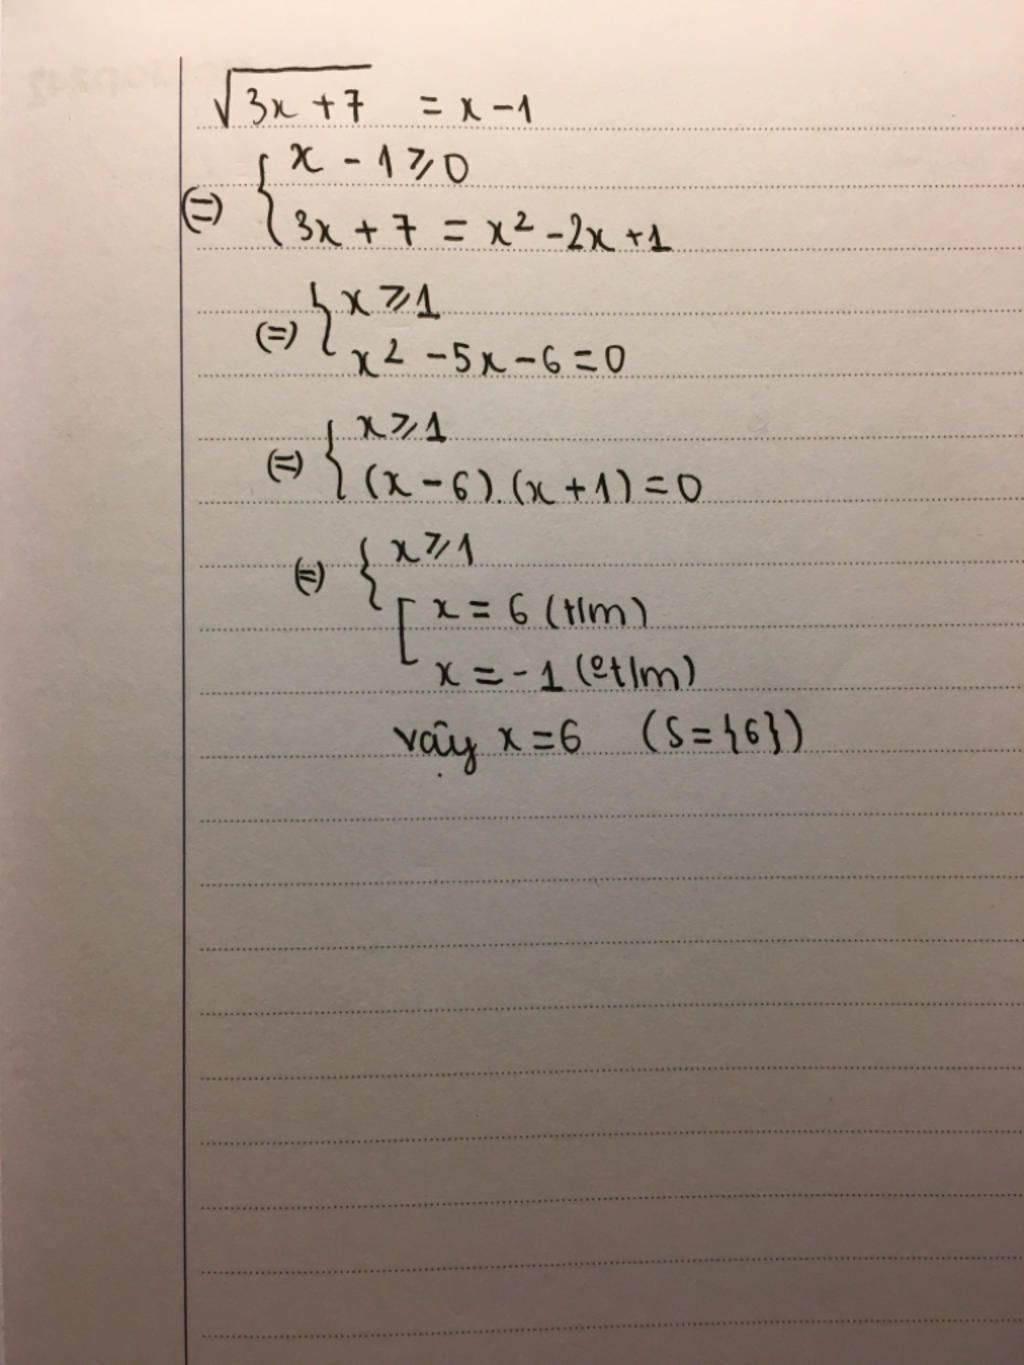 √(3x+7) = x-1
(=) { x - 1 ⩾ 0
3x + 7 = x² - 2x + 1
(=) { x ⩾ 1
x² - 5x - 6 = 0
(=) { x ⩾ 1
(x - 6).(x + 1) = 0
(=) { x ⩾ 1
[ x = 6 (t/m)
x = -1 (ºt/m)
vậy x = 6 (S = {6})